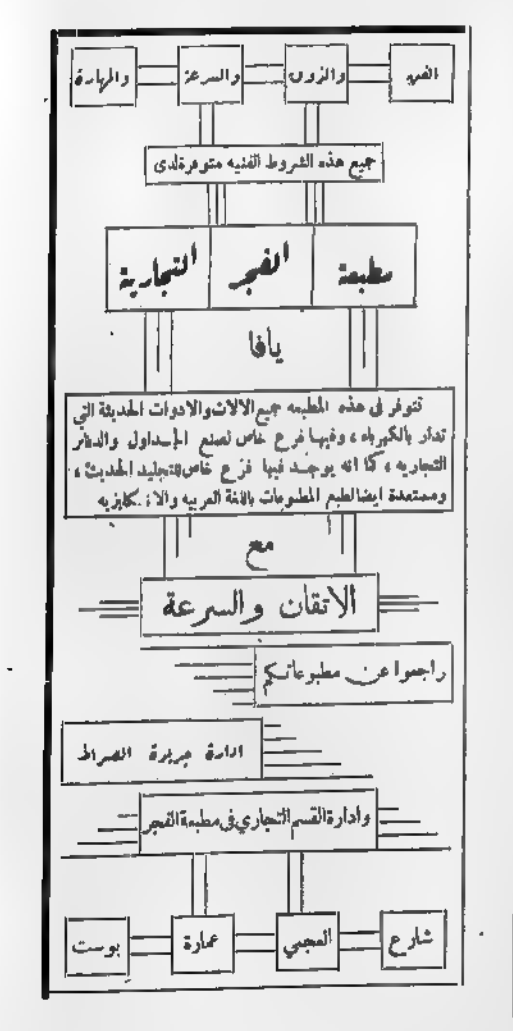 الفن والذوق والسرعة والمهارة
جميع هذه الشروط الفنيه متوفرة لدى
مطبعة الفجر التجارية
يافا
تتوفر في هذه المطبعه جميع الالات والادوات الحديثة التي
تدار بالكهرباء ، وفيها فرع خاص لصنع الجداول والدفاتر
التجاريه ، كما انه يوجد فيها فرع خاص للتجليد الحديث ،
ومستعدة ايضا لطبع المطبوعات باللغة العربيه والانكليزيه
مع
الاتقان والسرعة
راجعوا عن مطبوعاتكم
ادارة جريدة الصراط
وادارة القسم التجاري في مطبعة الفجر
شارع العجمي عمارة بوست